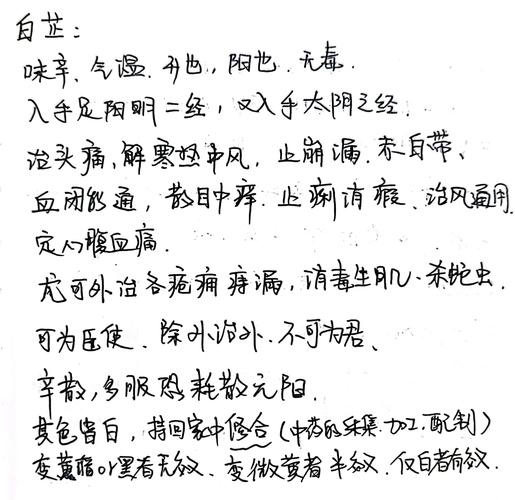 白芷：
味辛、气温、升也，阳也、无毒、
入手足阳明二经，又入手太阴之经、
治头痛、解寒热中风，止崩漏、赤白带、
血闭能通，散目中痒、止痢消瘕、治风通用、
定心腹血痛、
尤可外治各疮痈痔漏，消毒生肌、杀蛇虫、
可为臣使、除外治外、不可为君、
辛散，多服恐耗散元阳、
其色皆白，持回家中修合（中药的采集、加工、配制）
变 or黑者无效、变微黄者半效、仅白者有效、